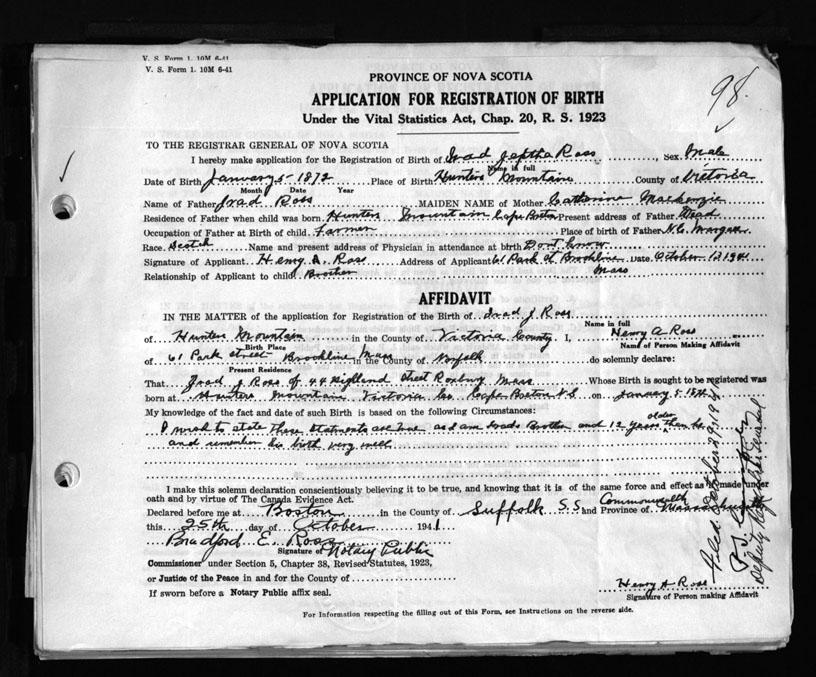 V. S. Form 1. 10M 6-41
V. S. Form 1. 10M 6-41
98.
PROVINCE OF NOVA SCOTIA
APPLICATION FOR REGISTRATION OF BIRTH
Under the Vital Statistics Act, Chap. 20, R. S. 1923
TO THE REGISTRAR GENERAL OF NOVA SCOTIA
I hereby make application for the Registration of Birth of Irad Jeptha Ross, Sex Male
Name in full
Date of Birth January 5- 1872 Place of Birth Hunters Mountain County of Victoria
Month Date Year
Name of Father Irad Ross MAIDEN NAME of Mother Catherine Mackenzie
Residence of Father when child was born Hunters Mountain Cape Breton Present address of Father Dead
Occupation of Father at Birth of child Farmer Place of birth of Father N.E. Margaree
Race Scotch Name and present address of Physician in attendance at birth Dont know
Signature of Applicant Henry A. Ross Address of Applicant 61 Park St Brookline Date October 1941
Mass
Relationship of Applicant to child Brother
AFFIDAVIT
IN THE MATTER of the application for Registration of the Birth of Irad J Ross
Name in full
of Hunters Mountain in the County of Victoria County I, Henry A Ross
Birth Place Name of Person Making Affidavit
of 61 Park street Brookline Mass in the County of Norfolk do solemnly declare:
Present Residence
That Irad J Ross of 44 Highland Street Roxbury Mass Whose Birth is sought to be registered was
born at Hunters Mountain Victoria Co. Cape Breton N.S on January 5
My knowledge of the fact and date of such Birth is based on the following Circumstances:
I wish to state these statments are true as I am Irads Brother and 12 years older than he
and remember his birth very well
I make this solemn declaration conscientiously believing it to be true, and knowing that it is of the same force and effect as if made under
oath and by virtue of The Canada Evidence Act.
Declared before me at Boston in the County of Suffolk S.S and Province of Commonwealth Massachusetts
this 25th day of October 1941
Bradford E. Ross
Signature of Notary Public
Commissioner under Section 5, Chapter 38, Revised Statutes, 1923,
or Justice of the Peace in and for the County of
If sworn before a Notary Public affix seal.
Henry A Ross
Signature of Person making Affidavit
For Information respecting the filling out of this Form, see Instructions on the reverse side.
Filed October 29, 1941
Deputy Registrar General